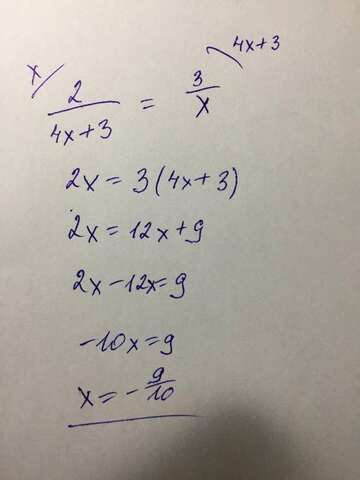 x/ 2/(4x+3) = 3/x \ 4x+3
2x = 3(4x+3)
2x = 12x+9
2x-12x=9
-10x=9
x= - 9/10